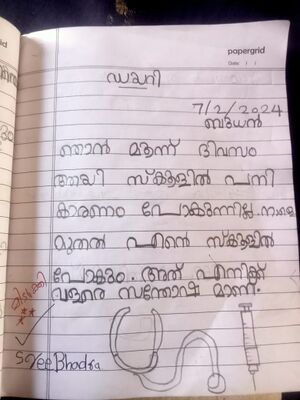 papergrid
Date: / /
ഡയറി
7/2/2024
ബുധൻ
ഞാൻ മൂന്ന് ദിവസം
ആയി സ്കൂളിൽ പനി
കാരണം പോകുന്നില്ല. നാളെ
മുതൽ എന്നെ സ്കൂളിൽ
പോകും. അത് എനിക്ക്
വളരെ സന്തോഷ മാണ്.
മിടുക്കി
Sree Bhadra